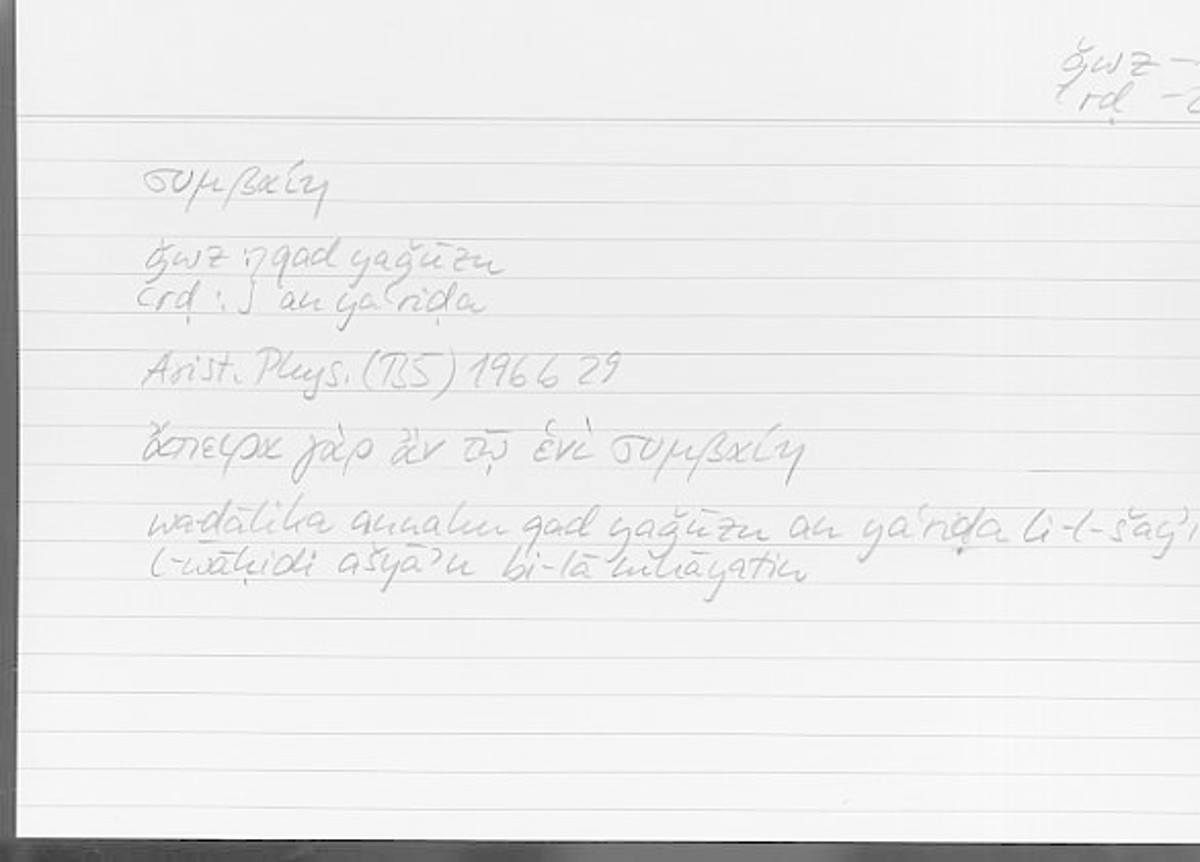 ǧwz –
ʿrḍ –
συμβαίη
ǧwz :⎫ qad yaǧūzu
ʿrḍ :⎭ an yaʿriḍa
Arist. Phys. (B5) 196b 29
ἄπειρα γὰρ ἂν τῷ ἑνὶ συμβαίη
wa-ḏālika annahu qad yaǧūzu an yaʿriḍa li-l-šayʾi
l-wāḥidi ašyāʾu bi-lā nihāyatin